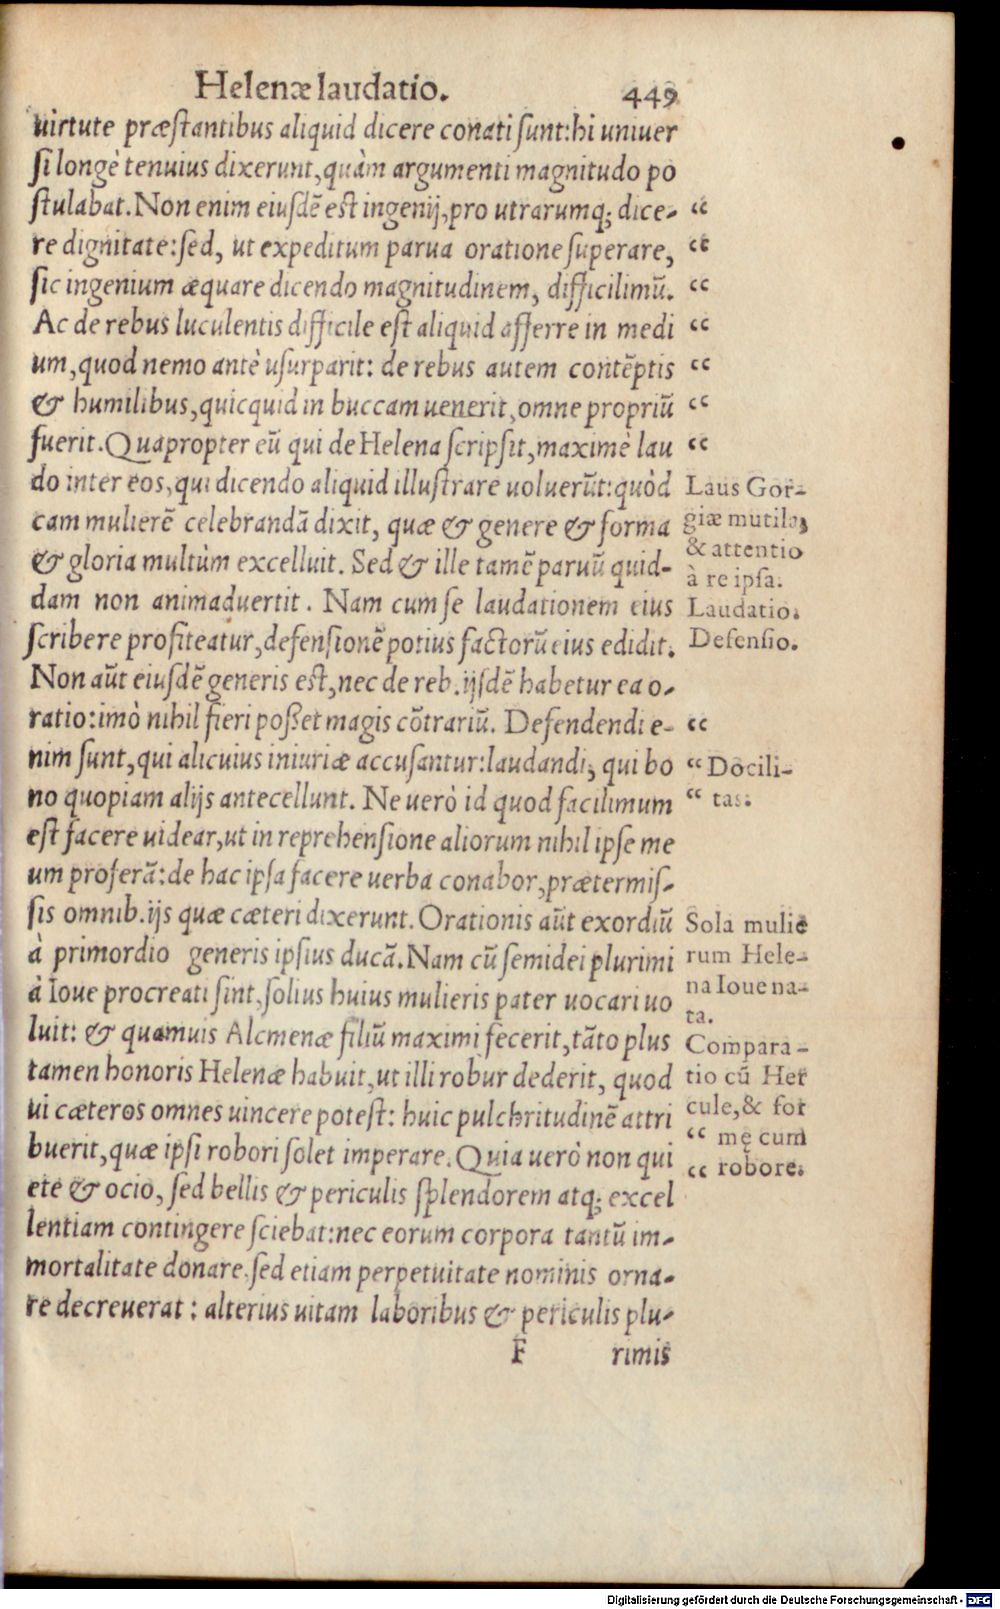 Helenæ laudatio. 449
uirtute præstantibus aliquid dicere conati sunt: hi uniuer
si longè tenuius dixerunt, quàm argumenti magnitudo po
stulabat. Non enim eiusdẽ est ingenij, pro utrarumq; dice- “
re dignitate: sed, ut expeditum parua oratione superare, “
sic ingenium æquare dicendo magnitudinem, difficilimũ. “
Ac de rebus luculentis difficile est aliquid afferre in medi “
um, quod nemo antè usurparit: de rebus autem contẽptis “
& humilibus, quicquid in buccam uenerit, omne propriũ “
fuerit. Quapropter eũ qui de Helena scripsit, maximè lau “
do inter eos, qui dicendo aliquid illustrare uoluerũt: quòd
eam mulierẽ celebrandã dixit, quæ & genere & forma
& gloria multùm excelluit. Sed & ille tamẽ paruũ quid-
dam non animaduertit. Nam cum se laudationem eius
scribere profiteatur, defensionẽ potius factorũ eius edidit.
Non aũt eiusdẽ generis est, nec de reb. ijsdẽ habetur ea o-
ratio: imò nihil fieri posset magis cõtrariũ. Defendendi e- “
nim sunt, qui alicuius iniuriæ accusantur: laudandi, qui bo
no quopiam alijs antecellunt. Ne uerò id quod facilimum
est facere uidear, ut in reprehensione aliorum nihil ipse me
um proferã: de hac ipsa facere uerba conabor, prætermis-
sis omnib. ijs quæ cæteri dixerunt. Orationis aũt exordiũ
à primordio generis ipsius ducã. Nam cũ semidei plurimi
à Ioue procreati sint, solius huius mulieris pater uocari uo
luit: & quamuis Alcmenæ filiũ maximi fecerit, tãto plus
tamen honoris Helenæ habuit, ut illi robur dederit, quod
ui cæteros omnes uincere potest: huic pulchritudinẽ attri
buerit, quæ ipsi robori solet imperare. Quia uerò non qui
ete & ocio, sed bellis & periculis splendorem atq; excel
lentiam contingere sciebat: nec eorum corpora tantũ im-
mortalitate donare, sed etiam perpetuitate nominis orna-
re decreuerat: alterius uitam laboribus & periculis plu-
F rimis
Laus Gor-
giæ mutila,
& attentio
à re ipsa.
Laudatio.
Defensio.
“ Docili-
“ tas.
Sola mulie
rum Hele-
na Ioue na-
ta.
Compara-
tio cũ Her
cule, & for
“ mę cum
“ robore.
Digitalisierung gefördert durch die Deutsche Forschungsgemeinschaft - DFG